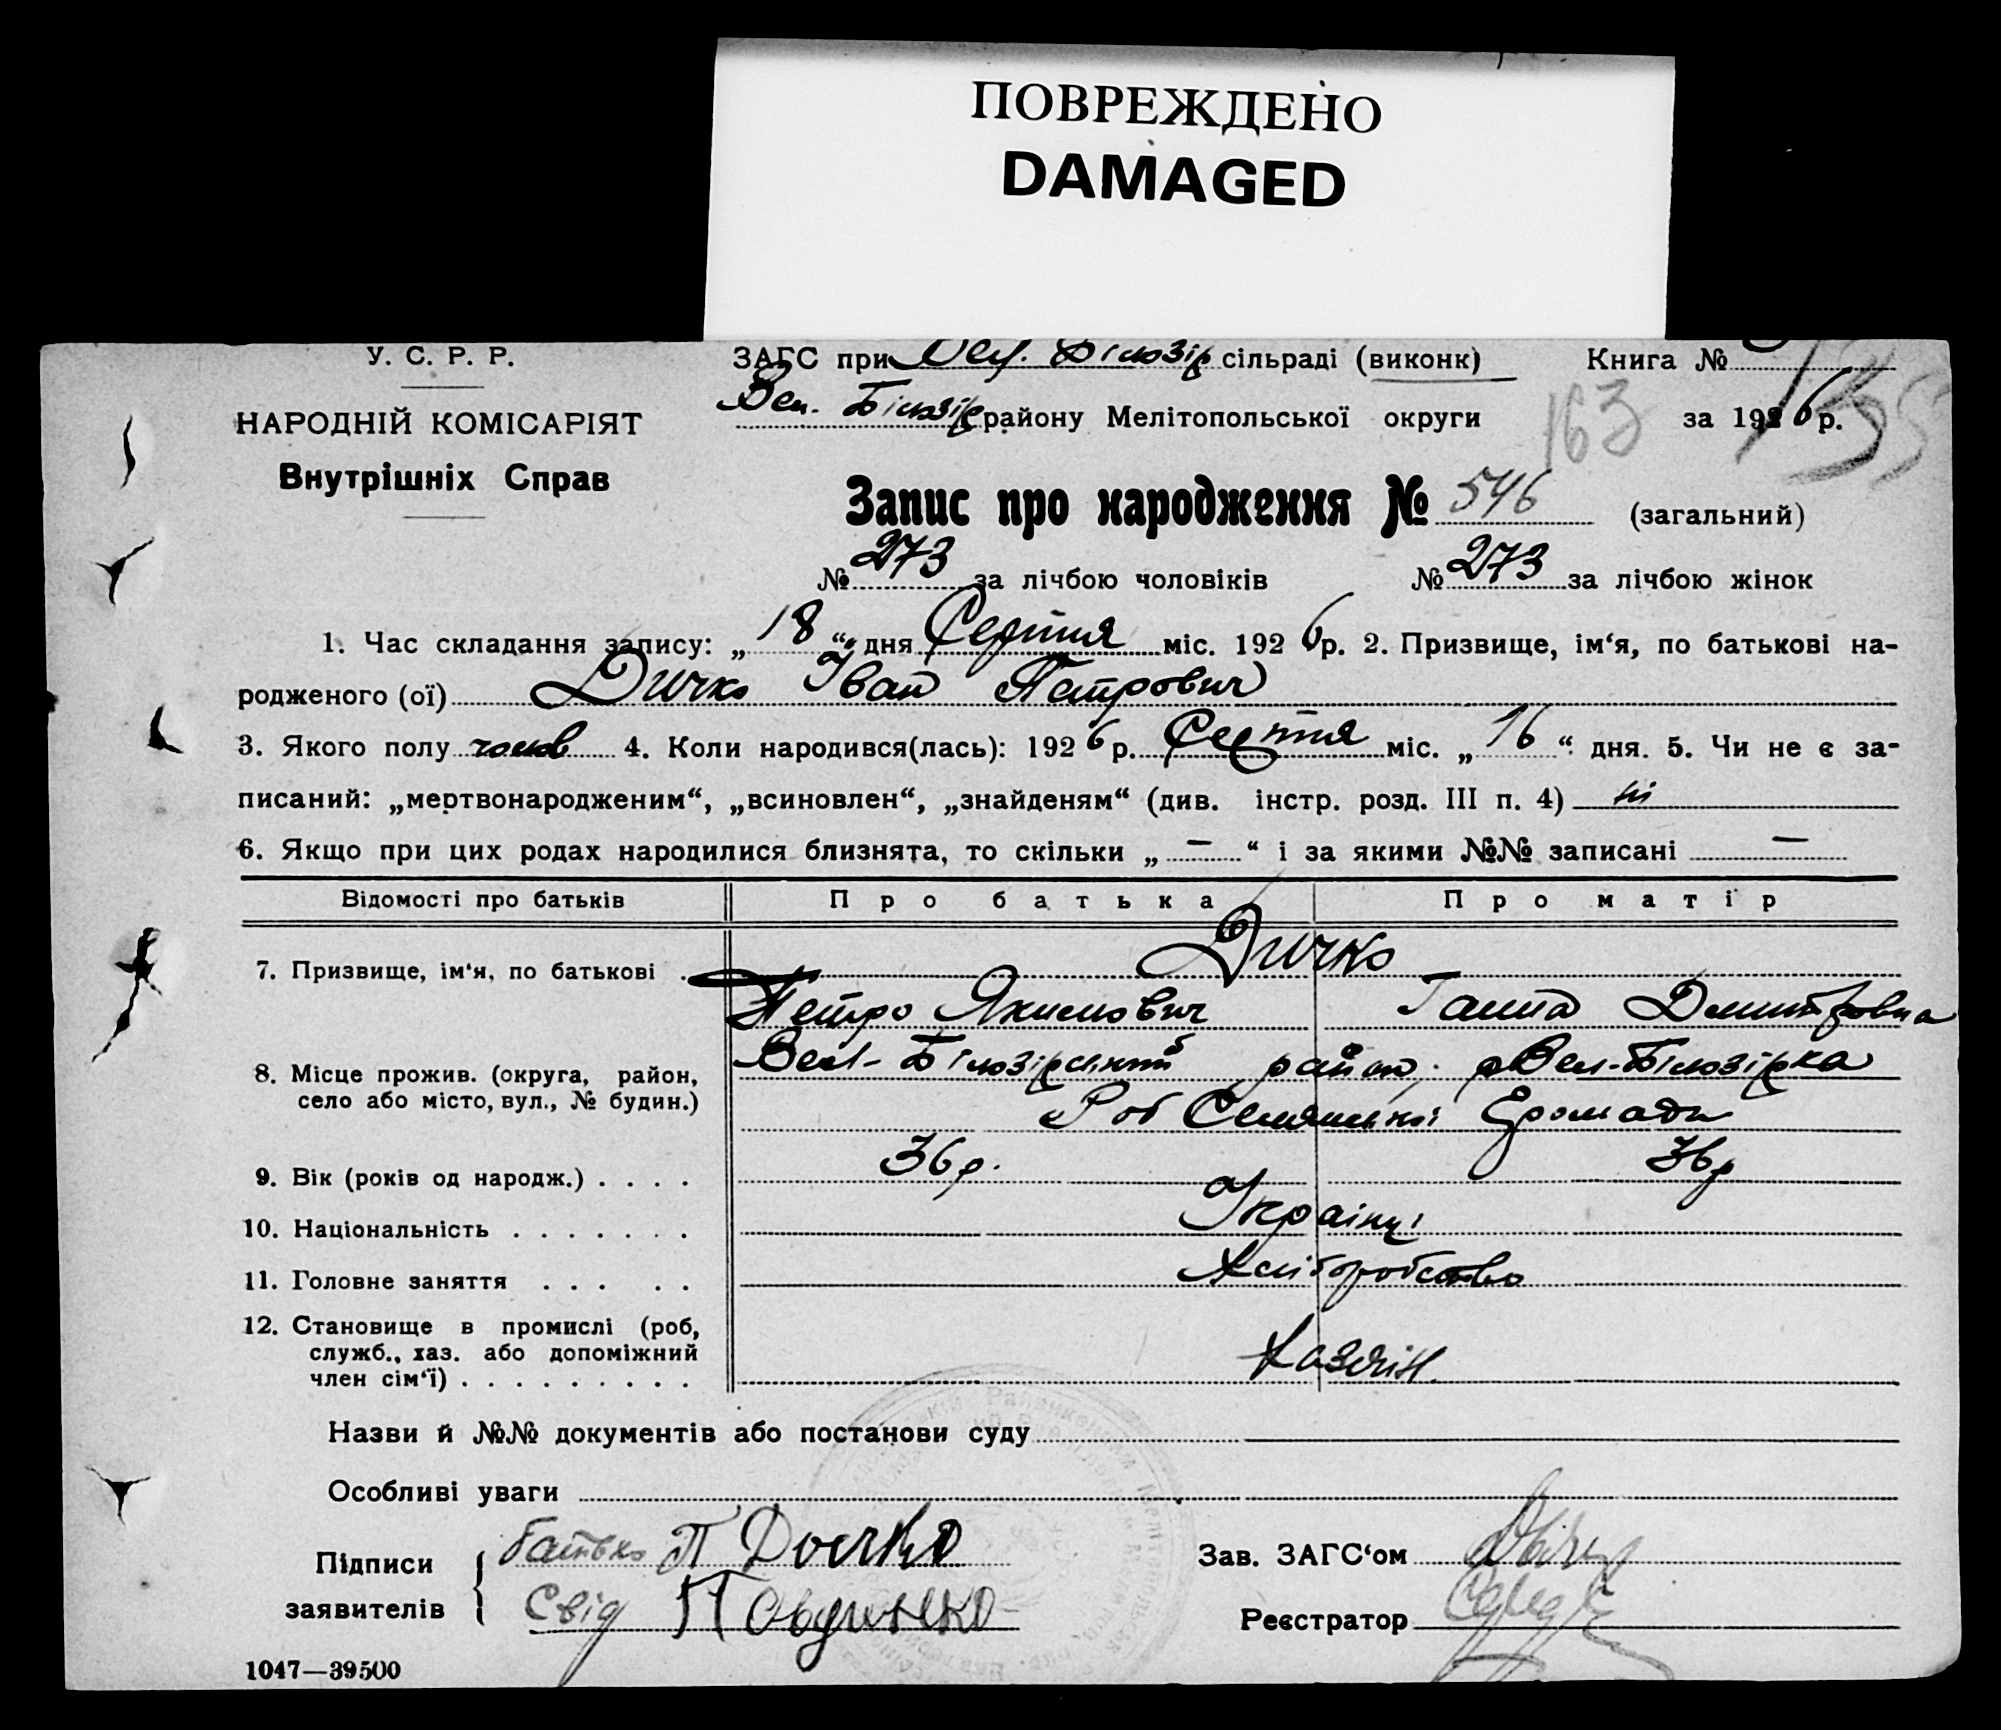 ПОВРЕЖДЕНО
DAMAGED
У. С. Р. Р.
ЗАГС при Вел. Білозір сільраді (виконк)
Книга №
НАРОДНІЙ КОМІСАРІЯТ
Внутрішніх Справ
Вел. Білозір району Мелітопольської округи
163
за 1926 р.
Запис про народження № 546 (загальний)
№ 273 за лічбою чоловіків № 273 за лічбою жінок
1. Час складання запису: „ 18 “ дня Серпня міс. 1926 р. 2. Призвище, ім‘я, по батькові на-
родженого (ої) Дичко Іван Петрович
3. Якого полу чолов 4. Коли народився(лась): 1926 р. Серпня міс. „ 16 “ дня. 5. Чи не є за-
писаний: „мертвонародженим“, „всиновлен“, „знайденям“ (див. інстр. розд. III п. 4) ні
6. Якщо при цих родах народилися близнята, то скільки „ — “ і за якими №№ записані —
Відомості про батьків Про батька Про матір
7. Призвище, ім‘я, по батькові . Дичко
Петро Якимович Ганна Дмитровна
8. Місце прожив. (округа, район,
село або місто, вул., № будин.)
Вел-Білозірський район. Вел-Білозірка
Громади
9. Вік (років од народж.) . . . . 36 р. 36 р
10. Національність . . . . . . . Українці
11. Головне заняття . . . . . Хліборобство
12. Становище в промислі (роб,
служб., хаз. або допоміжний
член сім‘ї) . . . . . . . . . Хазяїн.
Назви й №№ документів або постанови суду
Особливі уваги
Підписи
заявителів
батько П Дычко
Свід
Зав. ЗАГС‘ом
Реєстратор
1047—39500